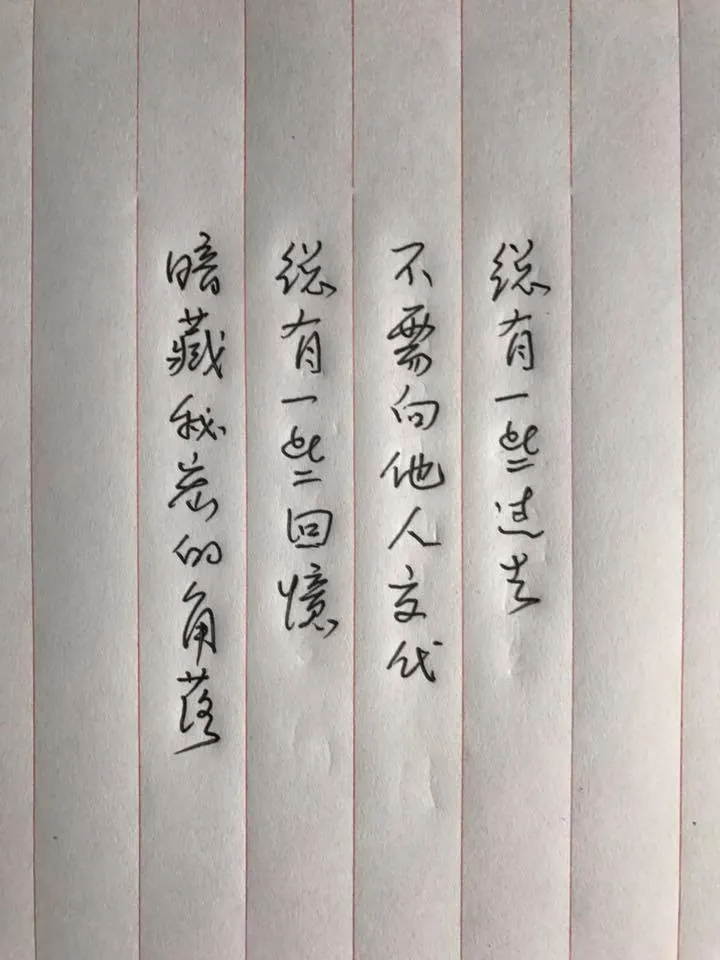 總有一些過去
不需向他人交代
總有一些回憶
暗藏私密的角落